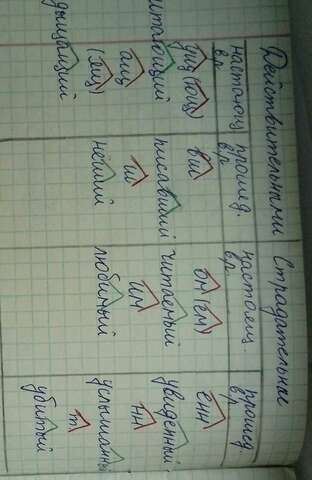 Действительными Страдательные
настоящ. вр. прошед. вр. настоящ. вр. прошед. вр.
ущ (ющ) вш ом (ем) енн
читающий писавший читаемый увиденный
ащ (ящ) ш им нн
дышащий нёсший любимый услышанны
т
убитый